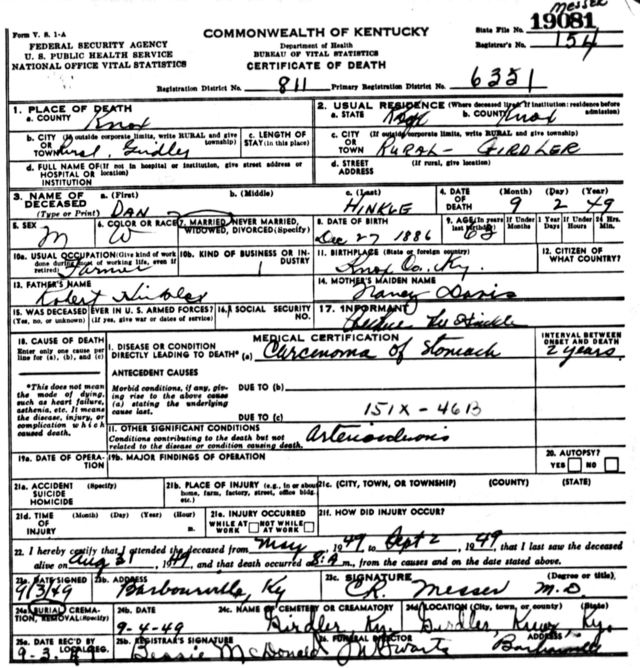 MESSER
Form V. S. 1-A
COMMONWEALTH OF KENTUCKY
State File No. 19081
FEDERAL SECURITY AGENCY
Department of Health
Registrar's No. 154
U. S. PUBLIC HEALTH SERVICE
BUREAU OF VITAL STATISTICS
NATIONAL OFFICE VITAL STATISTICS
CERTIFICATE OF DEATH
Registration District No. 811 Primary Registration District No. 6351
1. PLACE OF DEATH
a. COUNTY Knox
2. USUAL RESIDENCE (Where deceased lived. If institution: residence before admission)
a. STATE b. COUNTY Knox
b. CITY (If outside corporate limits, write RURAL and give township) OR TOWN Rural, Girdler
c. LENGTH OF STAY (in this place)
c. CITY (If outside corporate limits, write RURAL and give township) OR TOWN RURAL - GIRDLER
d. FULL NAME OF (If not in hospital or institution, give street address or location) HOSPITAL OR INSTITUTION
d. STREET ADDRESS (If rural, give location)
3. NAME OF DECEASED (Type or Print)
a. (First) DAN
b. (Middle)
c. (Last) HINKLE
4. DATE OF DEATH (Month) (Day) (Year) 9 2 49
5. SEX M
6. COLOR OR RACE W
7. MARRIED, NEVER MARRIED, WIDOWED, DIVORCED (Specify)
8. DATE OF BIRTH Dec 27 1886
9. AGE (In years last birthday) 62
If Under 1 Year Months Days
If Under 24 Hrs. Hours Min.
10a. USUAL OCCUPATION (Give kind of work done during most of working life, even if retired) Farmer
10b. KIND OF BUSINESS OR INDUSTRY
11. BIRTHPLACE (State or foreign country) Knox Co., Ky.
12. CITIZEN OF WHAT COUNTRY?
13. FATHER'S NAME
Robert Hinkle
14. MOTHER'S MAIDEN NAME
Nancy Davis
15. WAS DECEASED EVER IN U. S. ARMED FORCES?
(Yes, no, or unknown) (If yes, give war or dates of service)
16. SOCIAL SECURITY NO.
17. INFORMANT
Lee Hinkle
18. CAUSE OF DEATH
Enter only one cause per line for (a), (b), and (c)
MEDICAL CERTIFICATION
INTERVAL BETWEEN ONSET AND DEATH
I. DISEASE OR CONDITION DIRECTLY LEADING TO DEATH* (a) Carcenoma of Stomach 2 years
*This does not mean the mode of dying, such as heart failure, asthenia, etc. It means the disease, injury, or complication which caused death.
ANTECEDENT CAUSES
Morbid conditions, if any, giving rise to the above cause (a) stating the underlying cause last.
DUE TO (b)
DUE TO (c)
151X - 46B
II. OTHER SIGNIFICANT CONDITIONS
Conditions contributing to the death but not related to the disease or condition causing death.
19a. DATE OF OPERATION
19b. MAJOR FINDINGS OF OPERATION
20. AUTOPSY?
YES NO
21a. ACCIDENT (Specify) SUICIDE HOMICIDE
21b. PLACE OF INJURY (e.g., in or about home, farm, factory, street, office bldg. etc.)
21c. (CITY, TOWN, OR TOWNSHIP) (COUNTY) (STATE)
21d. TIME OF INJURY (Month) (Day) (Year) (Hour) m.
21e. INJURY OCCURRED
WHILE AT WORK NOT WHILE AT WORK
21f. HOW DID INJURY OCCUR?
22. I hereby certify that I attended the deceased from May, 1949 to Sept 2, 1949, that I last saw the deceased
alive on Aug 31, 1949, and that death occurred at m., from the causes and on the date stated above.
23a. DATE SIGNED 9/3/49
23b. ADDRESS Barbourville, Ky
23c. SIGNATURE (Degree or title)
Messer M.D.
24a. BURIAL, CREMATION, REMOVAL (Specify)
24b. DATE 9-4-49
24c. NAME OF CEMETERY OR CREMATORY Girdler, Ky.
24d. LOCATION (City, town, or county) (State) Girdler, Knox, Ky.
25a. DATE REC'D BY LOCAL REG. 9-3
25b. REGISTRAR'S SIGNATURE Bessie McDonald
26. FUNERAL DIRECTOR ADDRESS
Swartz Barbourville